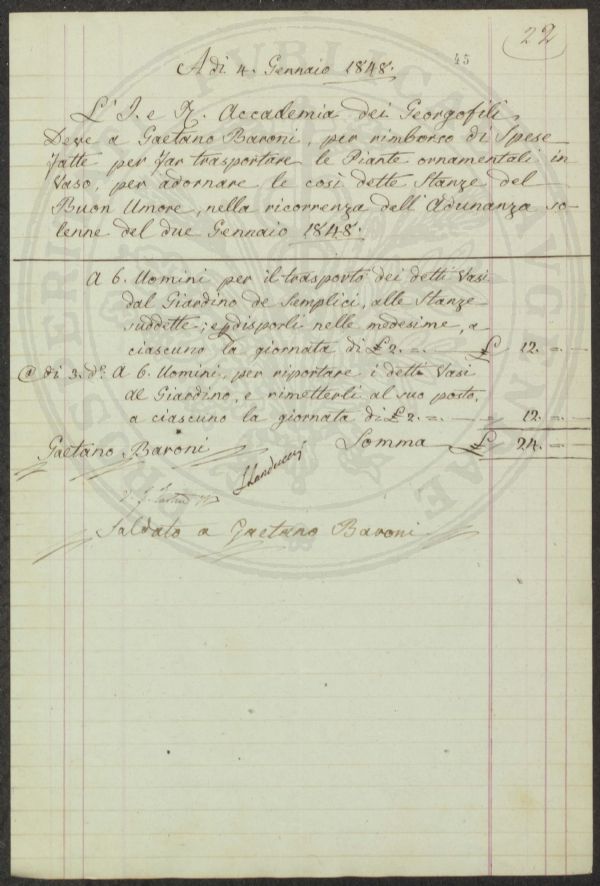 22
45
A dì 4. Gennaio 1848.
L'I. e R. Accademia dei Georgofili
Deve a Gaetano Baroni, per rimborso di Spese
fatte per far trasportare le Piante ornamentali in
Vaso, per adornare le così dette Stanze del
Buon Umore, nella ricorrenza dell'Adunanza so-
lenne del due Gennaio 1848.
A 6. Uomini per il trasporto dei detti Vasi
dal Giardino de Semplici, alle Stanze
suddette; e disporli nelle medesime, a
ciascuno la giornata di £ 2. = . £ 12. = . =
dì 3. d.o A 6. Uomini, per riportare i detti Vasi
al Giardino, e rimetterli al suo posto,
a ciascuno la giornata di £ 2. = . 12. = . =
Gaetano Baroni Somma £ 24. = . =
Saldato a Gaetano Baroni